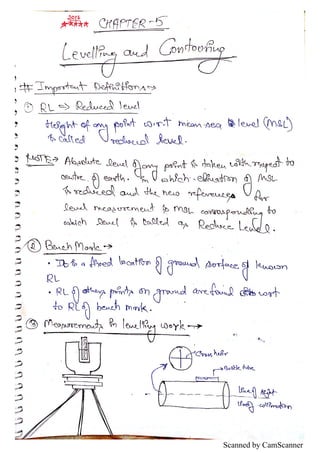 CHAPTER-5
Levelling and Contouring
# Important Definitions →
① RL ⇒ Reduced level
Height of any point w.r.t mean sea level (MSL)
is called reduced level.
NOTE → Absolute level of any point is taken with respect to
centre of earth. in which elevation of MSL
is reduced and the new reference for
level measurement is MSL corresponding to
which level is called as Reduce Level.
② Bench Mark. →
• It is a fixed location of ground surface of known
RL
• RL of points on ground are found wrt
to RL of bench mark.
③ Measurements in levelling work →
Cross hair
Bubble tube
line of sight
line of collimation
Scanned by CamScanner